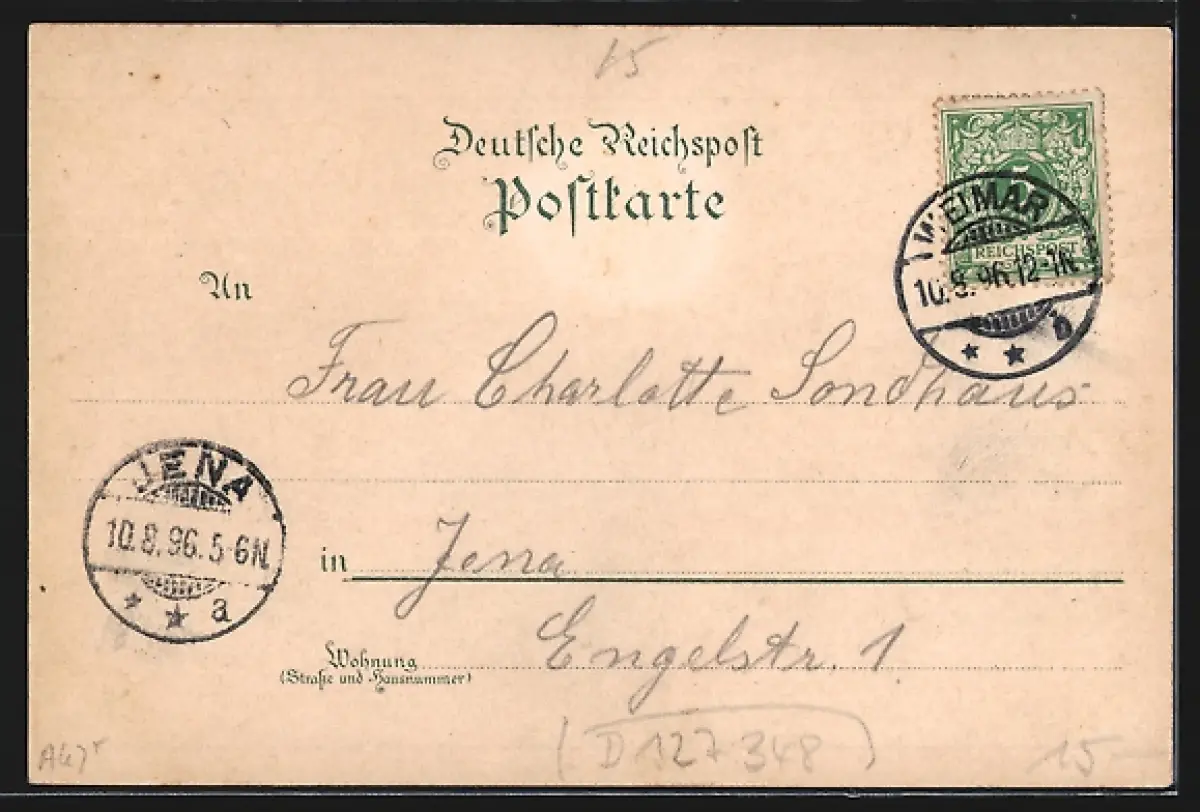 15
Deutsche Reichspost
Postkarte
5
REICHSPOST
WEIMAR 1
10.8.96.12-1N.
* * b
An
Frau Charlotte Sondhaus
JENA
10.8.96.5-6N.
* * a
in Jena
Engelstr. 1
Wohnung
(Straße und Hausnummer)
(D127348)
15-